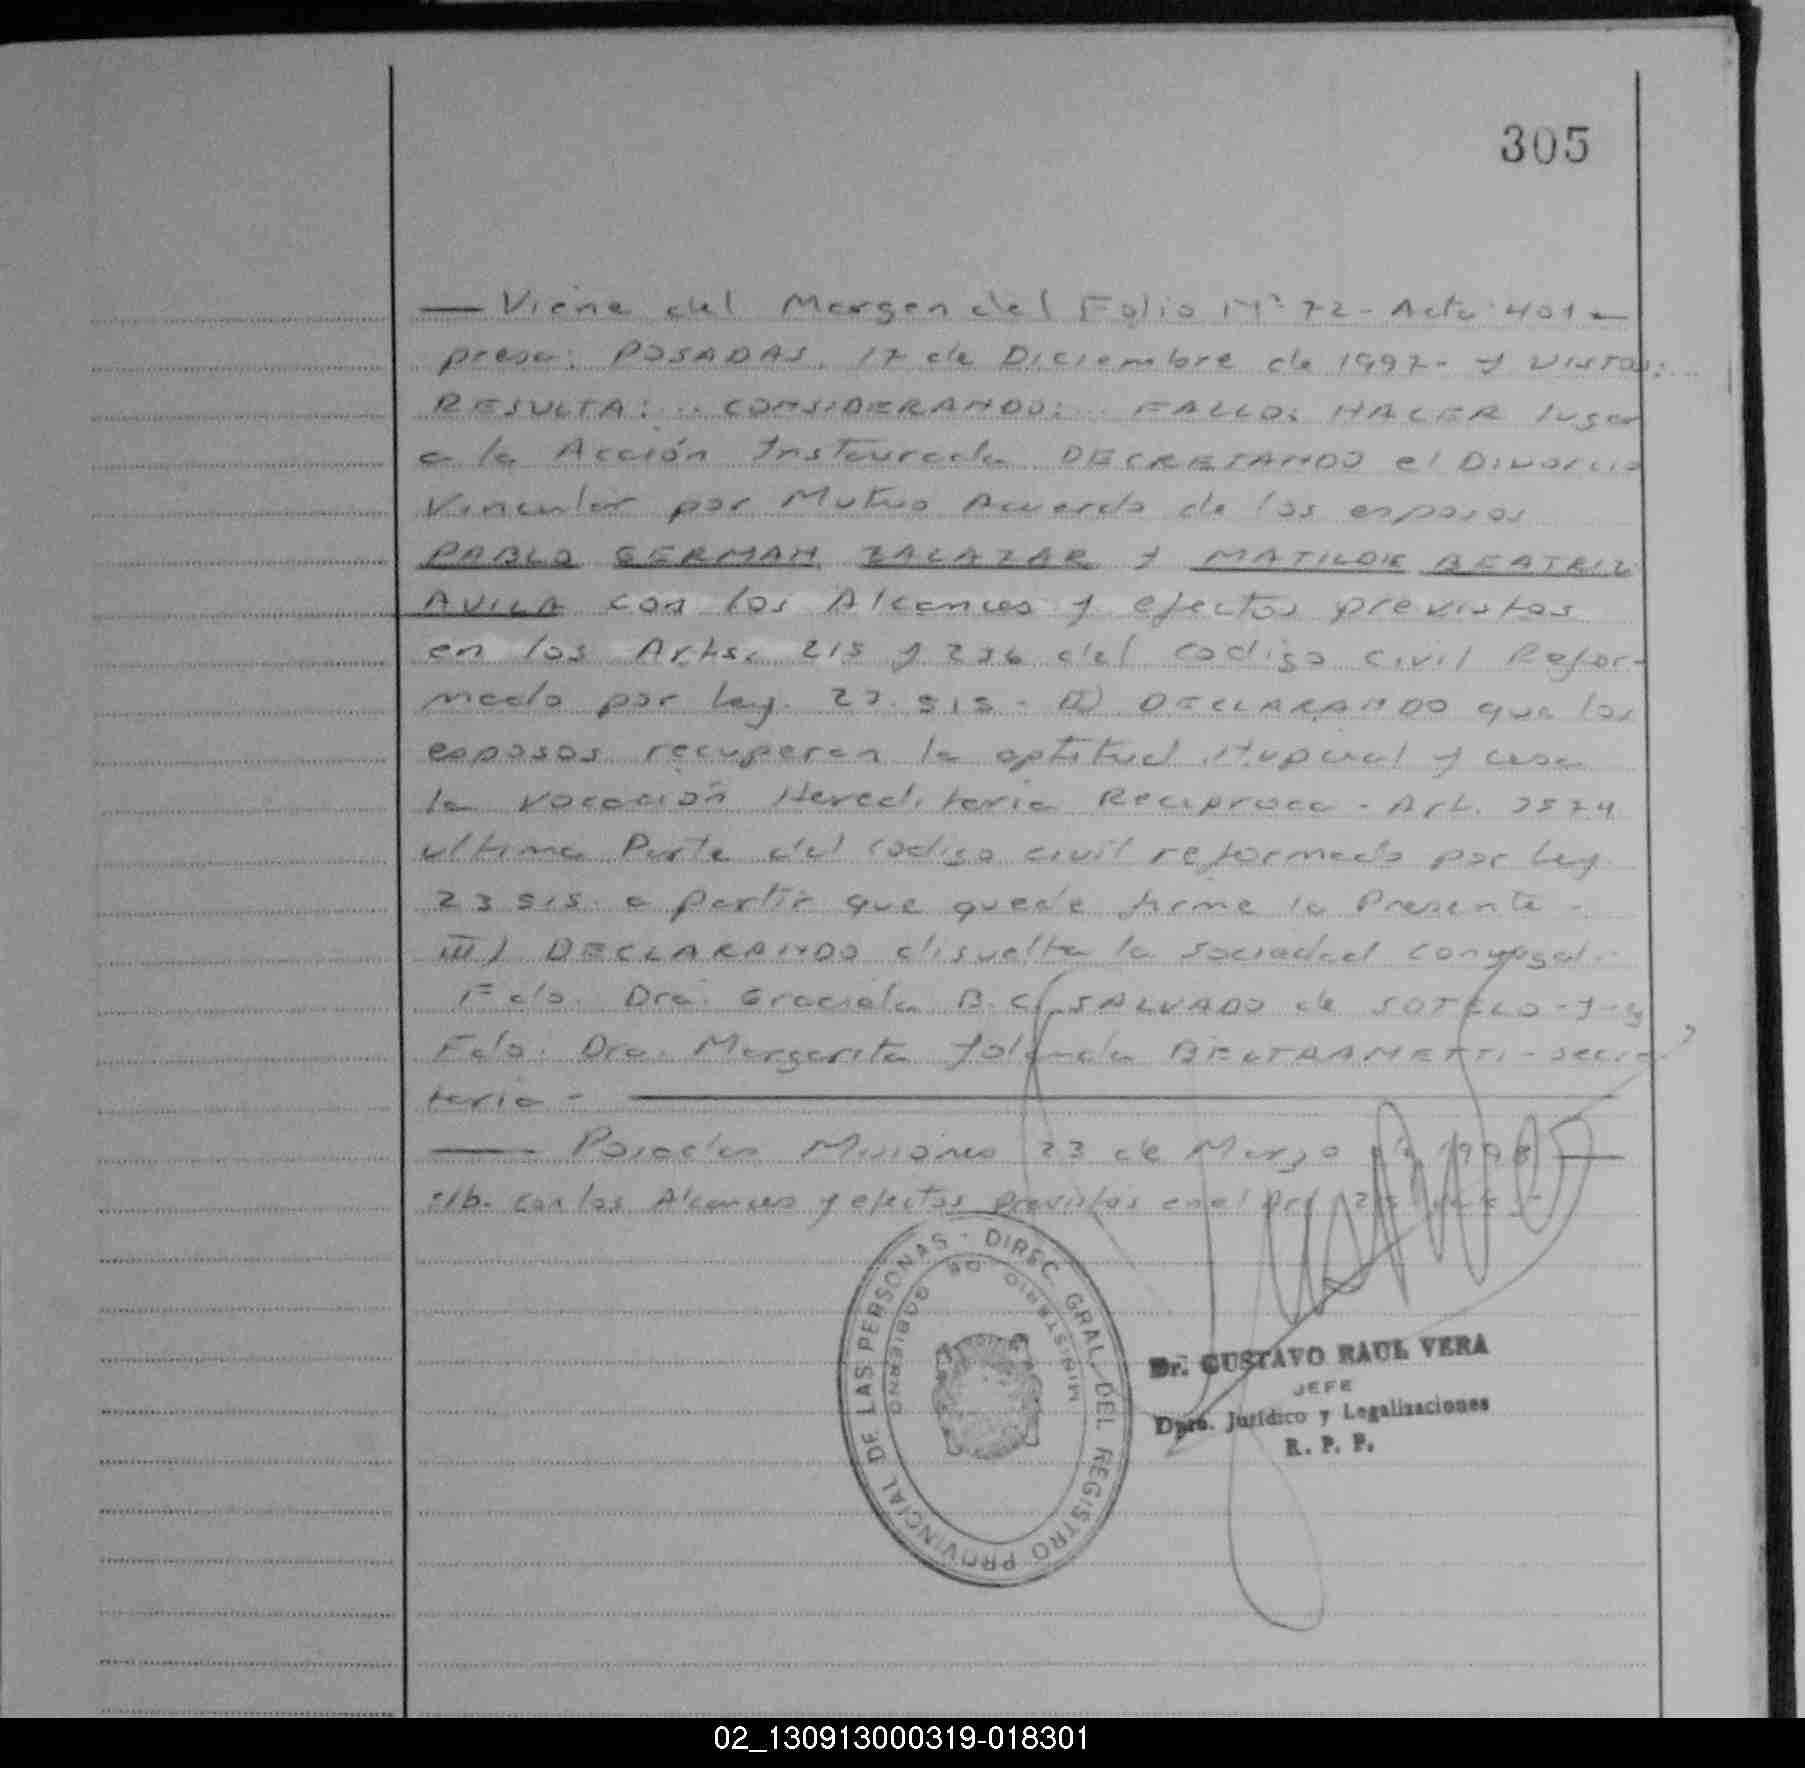 305
— Viene del Margen del Folio Nº 72 - Acta 401 -
presa: POSADAS, 17 de Diciembre de 1997 - Y VISTOS: ..
RESULTA: .. CONSIDERANDO: .. FALLO: HACER lugar
a la Acción Instaurada DECRETANDO el Divorcio
Vincular por Mutuo Acuerdo de los esposos
PABLO GERMAN ZALAZAR Y MATILDE BEATRIZ
AVILA con los Alcances y efectos previstos
en los Arts. 215 y 236 del codigo civil Refor-
mado por Ley. 23.515 - II) DECLARANDO que los
esposos recuperan la aptitud Nupcial y cesa
la vocación Hereditaria Reciproca - Art. 3574
ultima Parte del codigo civil reformado por Ley
23515. a partir que quede firme la Presente -
III) DECLARANDO disuelta la sociedad conyugal -
Fdo. Dra. Graciela B. C. SALVADO de SOTELO - J -
Fdo. Dra. Margarita Yolanda BELTRAMETTI - secre
taria -
— Posadas Misiones 23 de Marzo de 1998 —
con los Alcances y efectos previstos en el Art.
DIREC. GRAL. DEL REGISTRO PROVINCIAL DE LAS PERSONAS -
MINISTERIO DE GOBIERNO
Dr. GUSTAVO RAUL VERA
JEFE
Dpto. Jurídico y Legalizaciones
R. P. P.
02_130913000319-018301